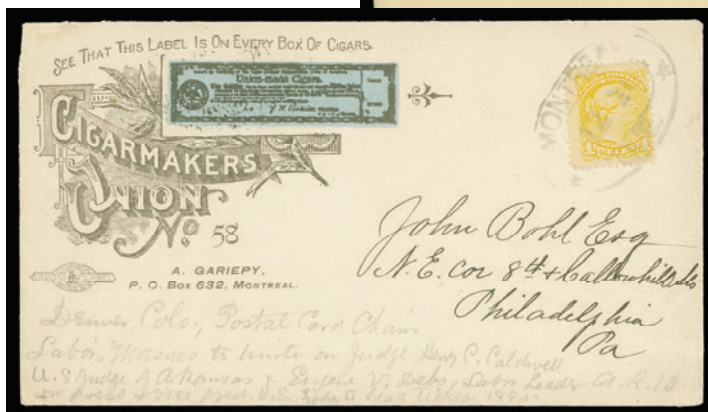 SEE THAT THIS LABEL IS ON EVERY BOX OF CIGARS.
Union-made Cigars.
CIGARMAKERS
UNION
No 58
A. GARIEPY,
P. O. Box 632, MONTREAL.
MONTREAL
ONE CENT
John Bohl Esq
N.E. cor 8th & Callowhill Sts
Philadelphia
Pa
Denver, Colo., Postal Card Chain
Labor Masses to Unite on Judge Henry C. Caldwell
U.S Judge of Arkansas & Eugene V. Debs, Labor Leader A.R.U